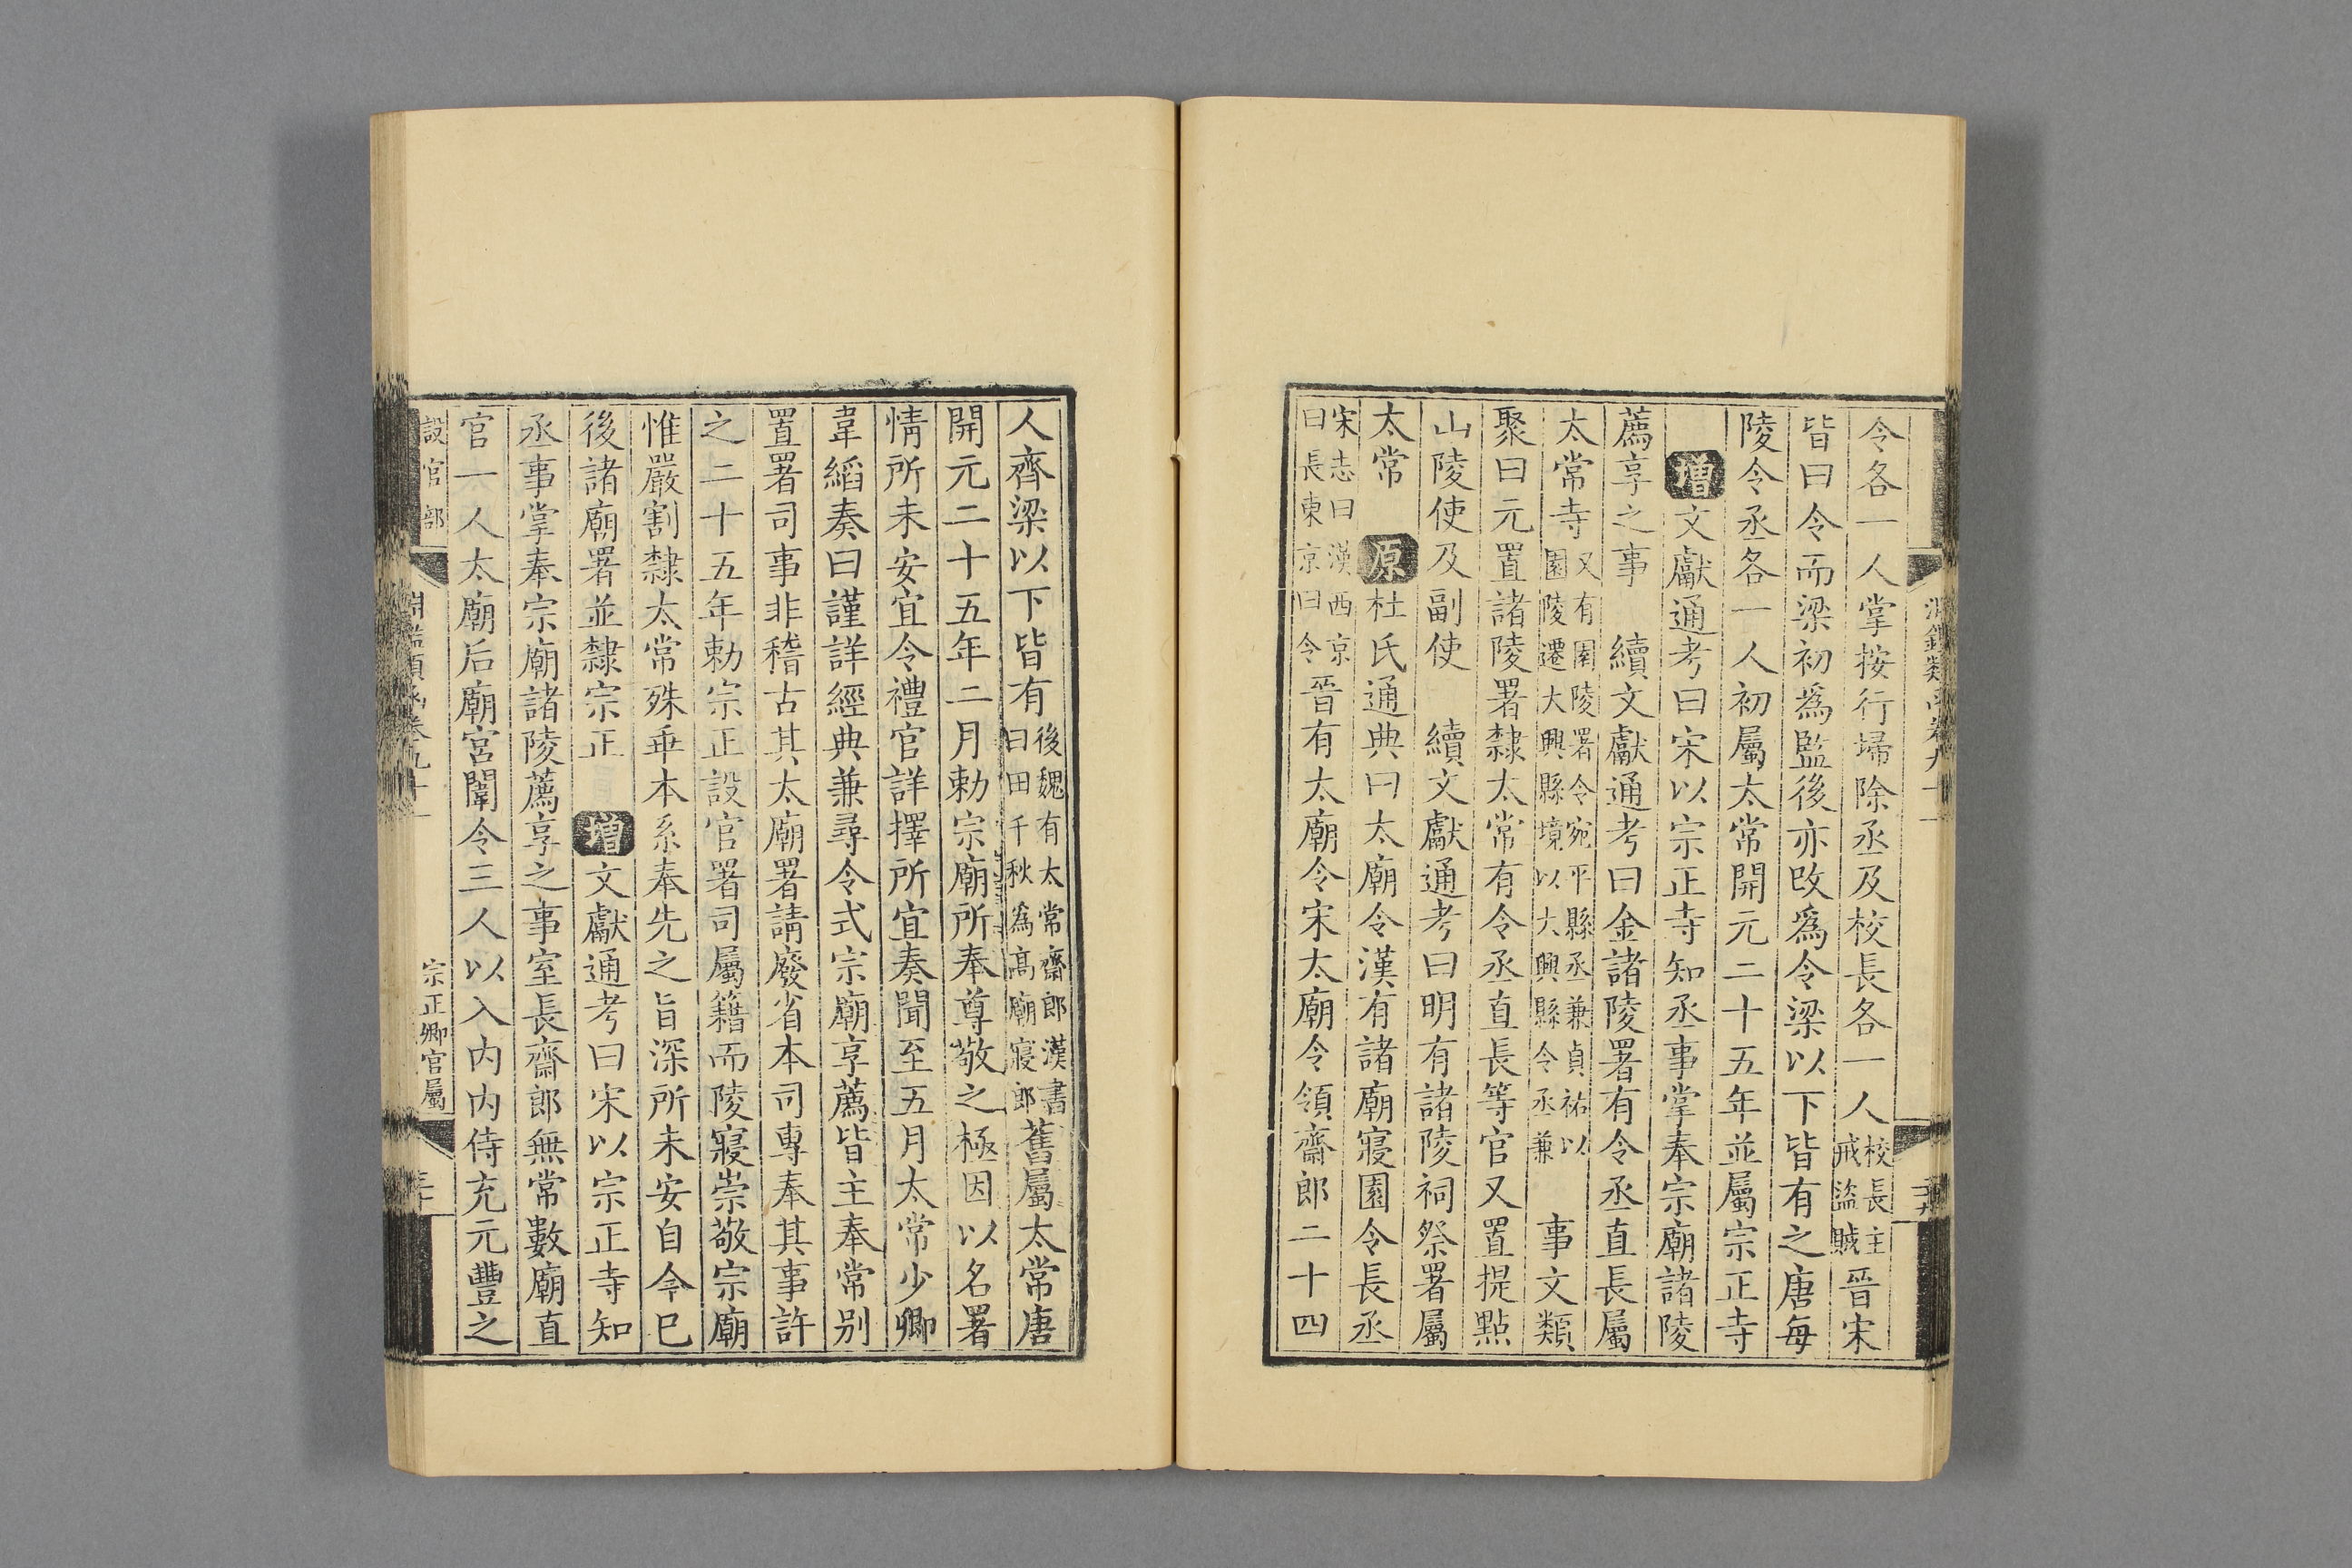 令各一人掌按行埽除丞及校長各一人校長主戒盜賊晉宋
皆曰令而梁初爲監後亦改爲令梁以下皆有之唐每
陵令丞各一人初屬太常開元二十五年並屬宗正寺
增文獻通考曰宋以宗正寺知丞事掌奉宗廟諸陵
薦享之事　續文獻通考曰金諸陵署有令丞直長屬
太常寺又有園陵署令宛平縣丞兼貞祐以園陵遷大興縣境以大興縣令丞兼　事文類
聚曰元置諸陵署隸太常有令丞直長等官又置提點
山陵使及副使　續文獻通考曰明有諸陵祠祭署屬
太常　原杜氏通典曰太廟令漢有諸廟寢園令長丞
宋志曰漢西京曰長東京曰令晉有太廟令宋太廟令領齋郎二十四
人齊梁以下皆有後魏有太常齋郎漢書曰田千秋爲高廟寢郎舊屬太常唐
開元二十五年二月勅宗廟所奉尊敬之極因以名署
情所未安宜令禮官詳擇所宜奏聞至五月太常少卿
韋縚奏曰謹詳經典兼尋令式宗廟享薦皆主奉常别
置署司事非稽古其太廟署請廢省本司專奉其事許
之二十五年勅宗正設官署司屬籍而陵寢崇敬宗廟
惟嚴割隸太常殊乖本系奉先之旨深所未安自今巳
後諸廟署並隸宗正　增文獻通考曰宋以宗正寺知
丞事掌奉宗廟諸陵薦享之事室長齋郎無常數廟直
官一人太廟后廟宮闈令三人以入内内侍充元豐之
設官部
宗正卿官屬